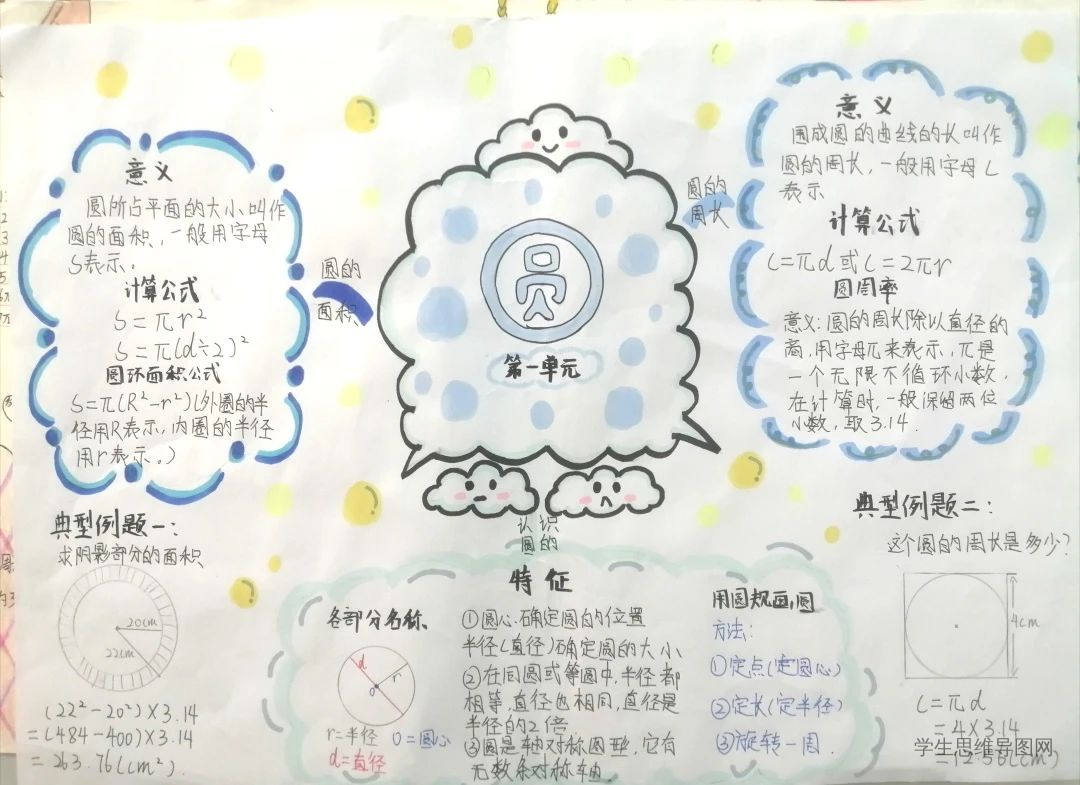 圆
第一单元
圆的
面积
意义
圆所占平面的大小叫作
圆的面积,一般用字母
S表示。
计算公式
S=πr²
S=π(d÷2)²
圆环面积公式
S=π(R²-r²)(外圆的半
径用R表示,内圆的半径
用r表示。)
圆的
周长
意义
围成圆的曲线的长叫作
圆的周长,一般用字母C
表示
计算公式
C=πd或C=2πr
圆周率
意义:圆的周长除以直径的
商,用字母π来表示,π是
一个无限不循环小数,
在计算时,一般保留两位
小数,取3.14.
典型例题一:
求阴影部分的面积
20cm
22cm
(22²-20²)×3.14
=(484-400)×3.14
=263.76(cm²)
认识
圆的
特征
各部分名称
d
r
o
r=半径 O=圆心
d=直径
①圆心确定圆的位置
半径(直径)确定圆的大小
②在同圆或等圆中,半径都
相等,直径也相同,直径是
半径的2倍
③圆是轴对称图型,它有
无数条对称轴.
用圆规画圆
方法:
①定点(定圆心)
②定长(定半径)
③旋转一周.
典型例题二:
这个圆的周长是多少?
4cm
C=πd
=4×3.14
=12.56(cm)
学生思维导图网